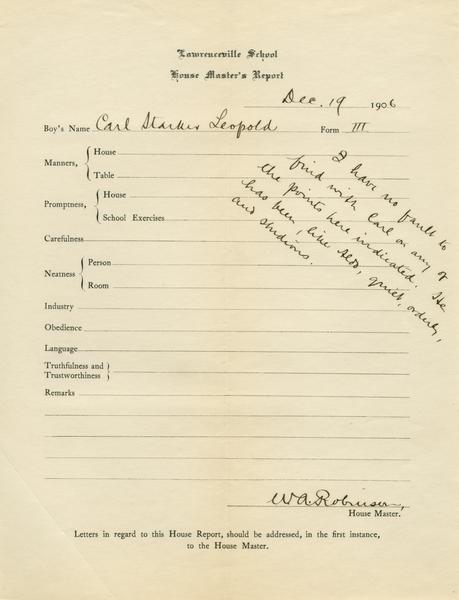 Lawrenceville School
House Master's Report
Dec. 19 1906
Boy's Name Carl Starker Leopold Form III
Manners, { House
Table
Promptness, { House
School Exercises
I have no fault to
find with Carl on any of
the points here indicated. He
has been, like Aldo, quiet, orderly,
and studious.
Carefulness
Neatness { Person
Room
Industry
Obedience
Language
Truthfulness and
Trustworthiness }
Remarks
W A Robinson,
House Master.
Letters in regard to this House Report, should be addressed, in the first instance,
to the House Master.